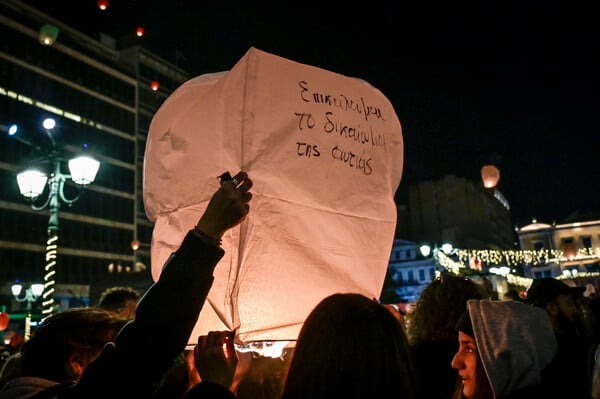 Επικαλούμαι
το δικαίωμα
της φωτιάς